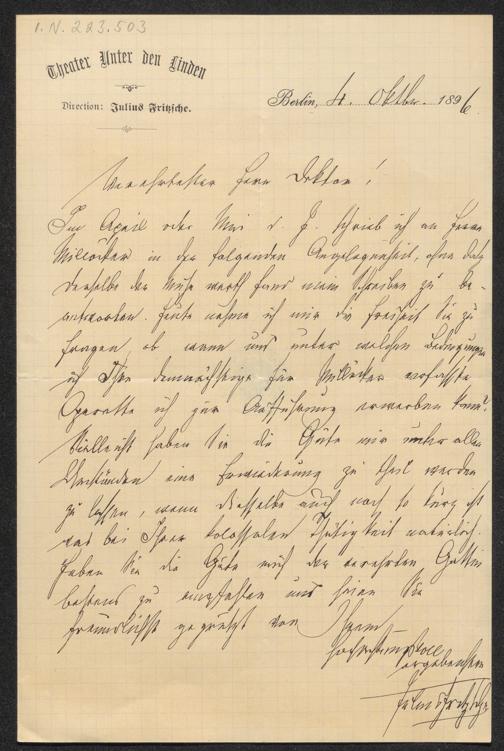 I. N. 223.503
Theater Unter den Linden
Direction: Julius Fritzsche.
Berlin, 4. Oktbr. 1896.
Verehrtester Herr Doktor!
Im April oder Mai d. J. schrieb ich an Herrn
Millöcker in der folgenden Angelegenheit, ohne daß
derselbe der Mühe werth fand mein Schreiben zu be-
antworten. Heute nehme ich mir die Freiheit Sie zu
fragen, ob wann und unter welchen Bedingungen
ich Ihre demnächstige für Millöcker verfasste
Operette ich zur Aufführung erwerben kann?
Vielleicht haben Sie die Güte mir unter allen
Umständen eine Erwiederung zu theil werden
zu lassen, wenn dieselbe auch noch so kurz ist
was bei Ihrer kolossalen Thätigkeit natürlich.
Haben Sie die Güte mich der verehrten Gattin
bestens zu empfehlen und seien Sie
freundlichst gegrüßt von Ihrem
hochachtungsvoll
ergebensten
Julius Fritzsche